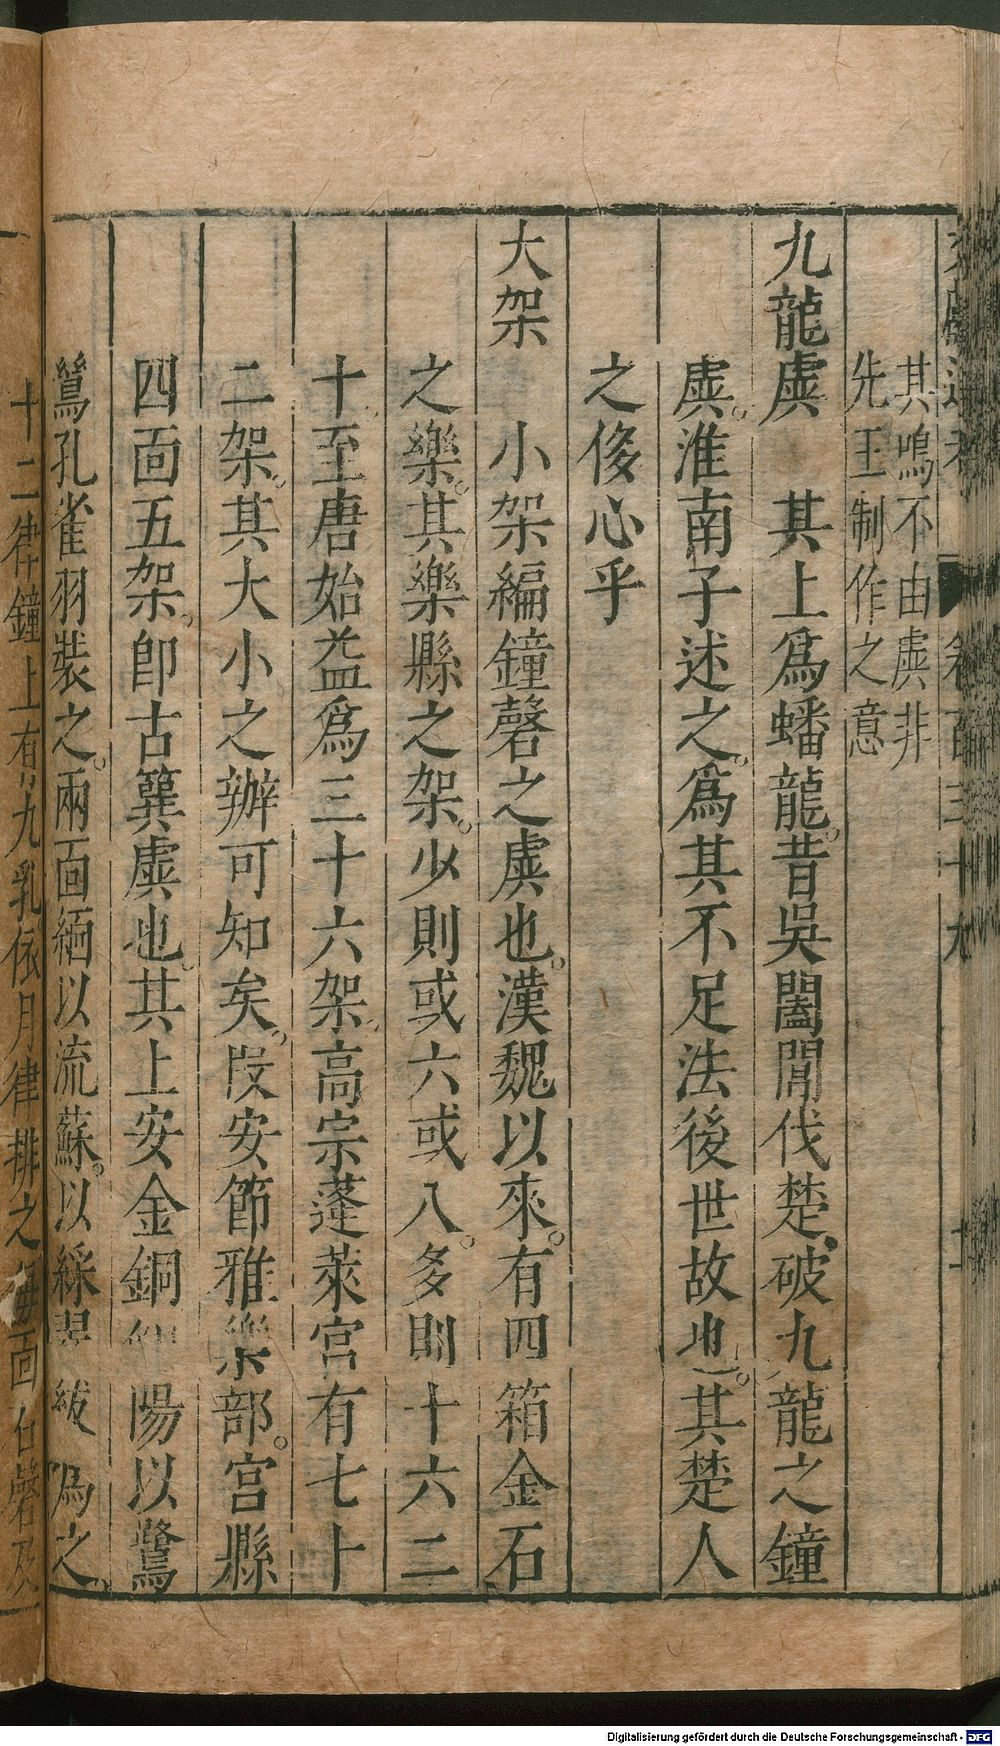 其鳴不由虡非
先王制作之意
九龍虡 其上爲蟠龍昔吳闔閭伐楚破九龍之鐘
虡淮南子述之爲其不足法後世故也其楚人
之侈心乎
大架 小架編鐘磬之虡也漢魏以來有四箱金石
之樂其樂縣之架少則或六或八多則十六二
十至唐始益爲三十六架高宗蓬萊宮有七十
二架其大小之辨可知矣段安節雅樂部宮縣
四面五架卽古簨虡也其上安金銅仰陽以鷺
鷥孔雀羽裝之兩面綴以流蘇以綵翠紱爲之
十二律鐘上有九乳依月律排之每面石磬及
Digitalisierung gefördert durch die Deutsche Forschungsgemeinschaft - DFG